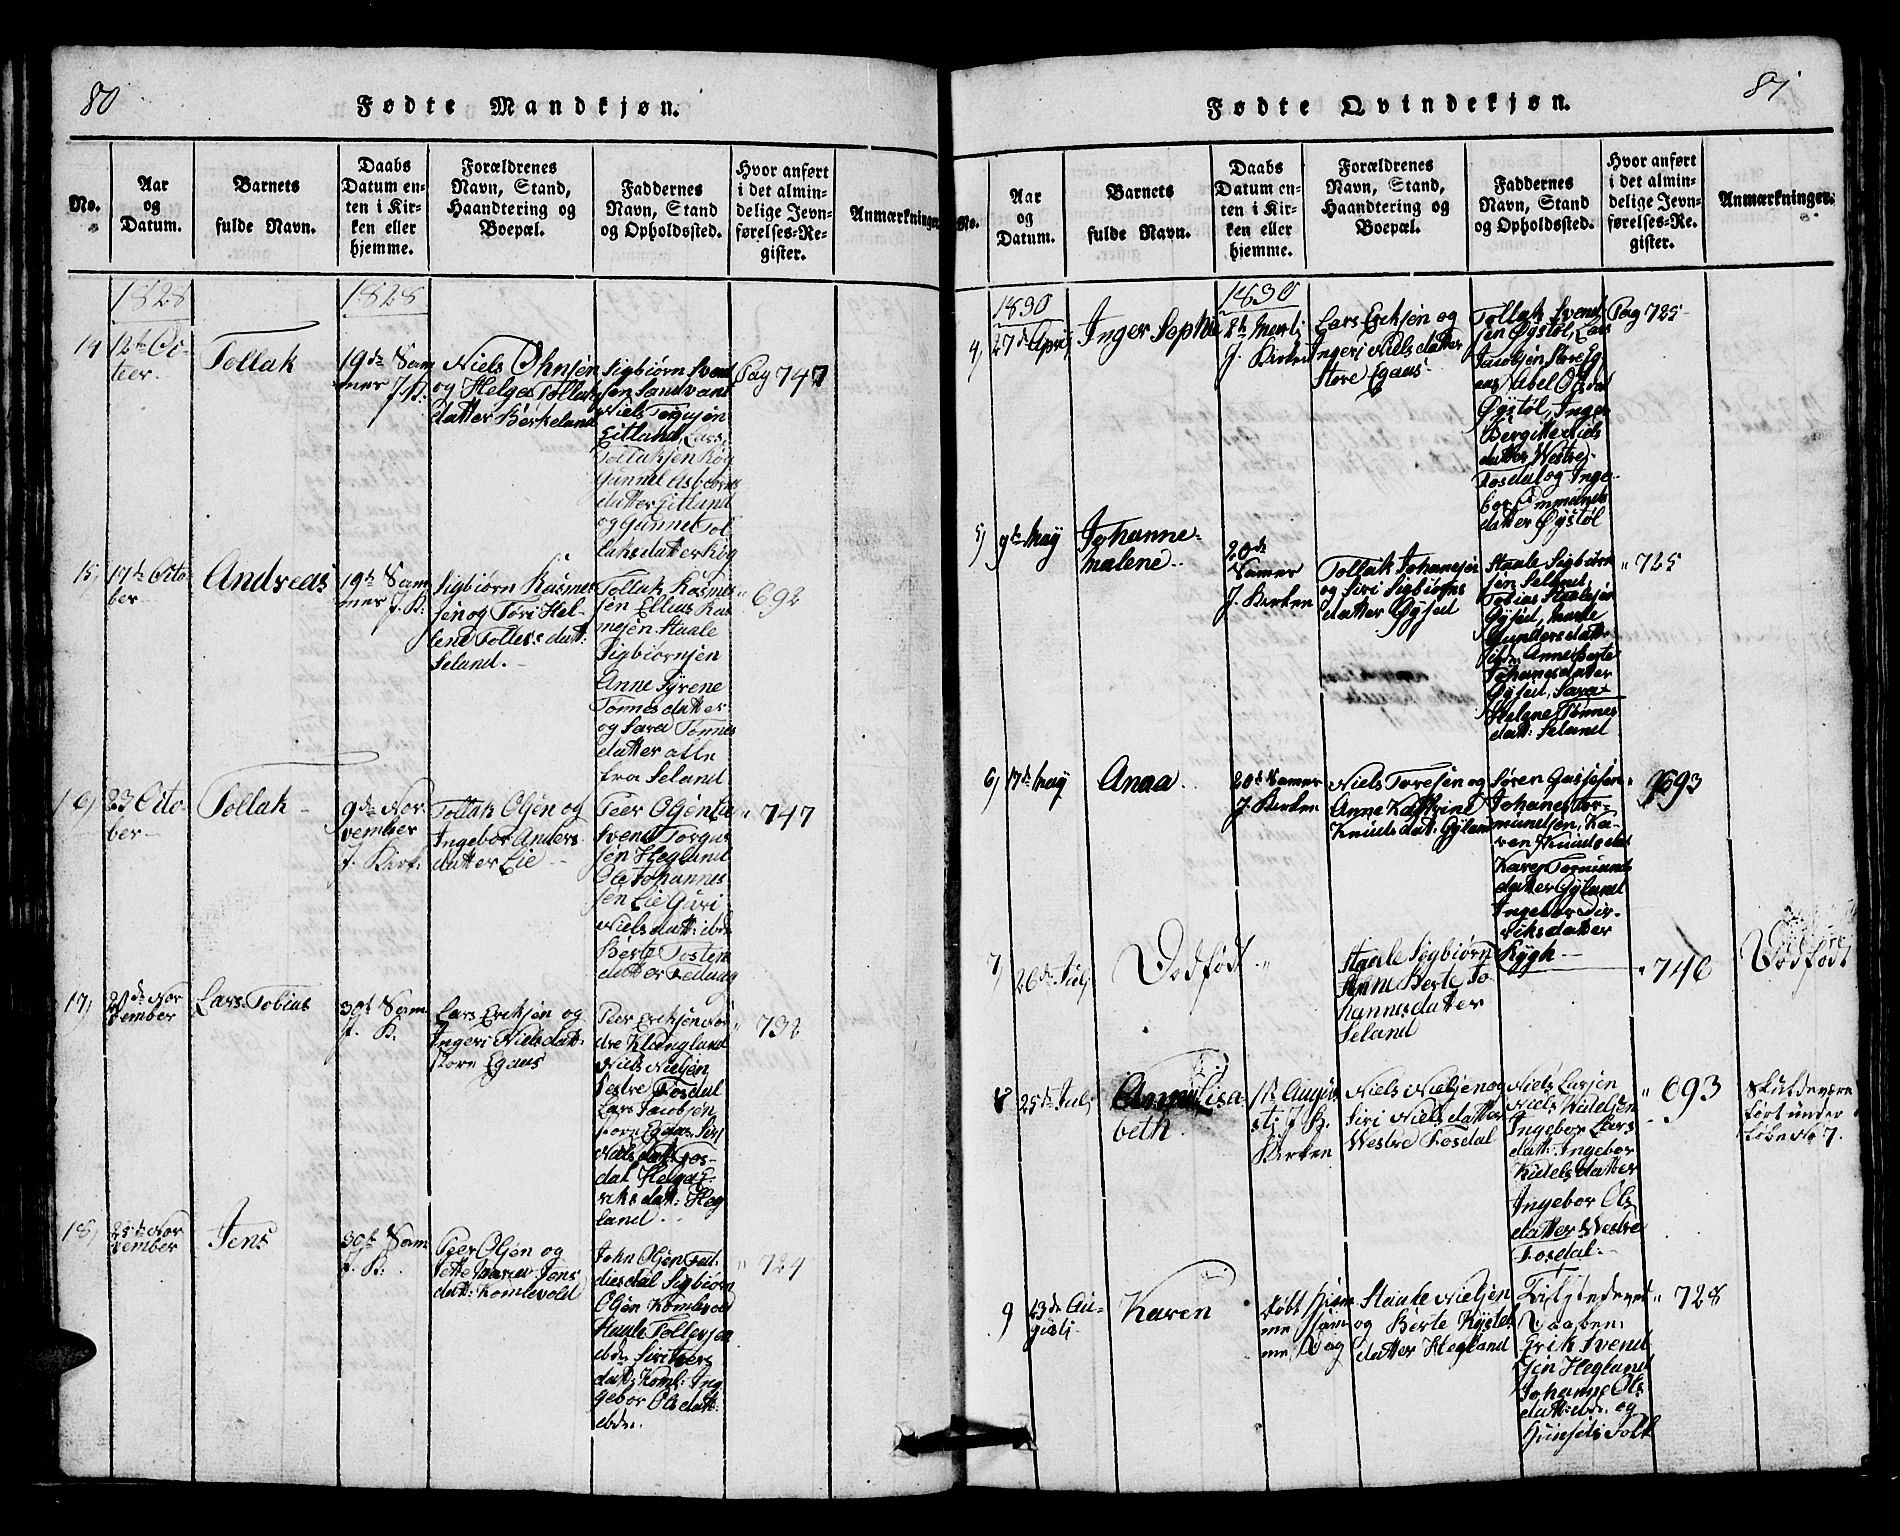 80
Fødte Mandkjøn.
No.
Aar
og
Datum.
Barnets
fulde Navn.
Daabs
Datum en-
ten i Kir-
ken eller
hjemme.
Forældrenes
Navn, Stand,
Haandtering og
Boepæl.
Faddernes
Navn, Stand
og Opholdssted.
Hvor anført
i det almin-
delige Jevn-
førelses-Re-
gister.
Anmærkninger.
1828
1828
14
12te Oc-
Tollak
19de Sam
me J. K:
Niels Ohnsen
og Helge Tollak
datter Berkeland
Sigbiørn Svend
sen Sandvand
Niels Torjusen
Eitland, Lars
Tollaksen Røg
Gunnil Asbiørns
datter Eitland
og Gunnil Tol
laksdatter Røg
Pag 747
15,
17de Octo
ber
Andreas
19de Sam
me J. K:
Sigbiørn Rasmus
sen og Tori Hel-
lene Tollefs datt:
Seland.
Tollak Rasmus
sen Ellias Ras
musen Staale
Sigbiørnsen
Anne Syrene
Tønnes datter
og Sara Tønnes
datter alle
fra Seland
" 692
16,
23 Octo
ber
Tollak
9de No-
vember
J. Kirk:
Tollak Olsen og
Ingebor Anders
datter Lie
Peer Olsen
Svend Torgus
sen Hegland
Ole Johannes
sen Lie Guri
Niels datt: ibd.
Berte Tosten
datter
" 747
17,
No
vember
Lars Tobias
30te Sam
J. K.
Lars Eriksen og
Ingeri Niels datt:
store Egaas
Peer Eriksen
Klungland
Niels Nielsen
Vestre Fosdal
Lars Jacobsen
store Egaas, Siri
Niels datt: Fos-
dal Helga E-
riks datt: Heg
land.
" 732
18,
25te No
vember
Jens
30te Sam
J. K:
Peer Olsen og
Jette Maria Jens
datt: Komlevold
John Olsen
Sigbiørn
Olsen Komlevold
Staale Tollefsen
ibd. Siri
datt: Koml: In
gebor Ols datt:
ibd.
" 724
81
Fødte Qvindekjøn.
No.
Aar
og
Datum.
Barnets
fulde Navn.
Daabs
Datum en-
ten i Kir-
ken eller
hjemme.
Forældrenes
Navn, Stand,
Haandtering og
Boepæl.
Faddernes
Navn, Stand
og Opholdssted.
Hvor anført
i det almin-
delige Jevn-
førelses-Re-
gister.
Anmærkninger.
1830
1830
4,
27de April
Inger Sophie
J. Kirken
Lars Eriksen og
Ingeri Niels datter
Store Egaas
Tollak Svend
sen Øystøl, Lars
Jacobsen Store Eg
aas, Abel Ols dat
Øystøl, Inger
Bergitte Niels
datter Westre
Fosdal og Inge-
bor Ommunds
datter Øystøl
Pag 725
5,
9de May
Johanne
Malene
20de
Samme
J. Kirken
Tollak Johansen
og Siri Sigbiørns
datter Øysed
Staale Sigbiørn
sen Seland,
Tobias Staalesen
Øysed, Marte
Gunders datt:
ibd. Anne Berte
Johanesdatter
Øysed, Sara
Helene Tønnes
datt: Seland
" 725
6,
17de May
Anna
20de Samme
J. Kirken
Niels Toresen og
Anne Kathrine
Knuds dat: Gyland
Søren
Johanes Tor-
mundsen, Ka-
ren Knuds dat
Karen Tormunds
datter Gyland
Ingebor Dir-
riks datter
Rygh
" 693
7,
26de July
Dødfødt "
Staale Sigbiørn
Anne Berte Jo
hannesdatter
Seland
" 746
Dødfødt
8
25de July
Anne Lisa
beth
1te Augu
sti J. H.
Kirken
Niels Nielsen og
Siri Niels datter
Westre Fosdal
Niels Larsen
Ingebor Lars
datt: Ingebor
Ingebor Ols
datter Westre
Fosdal.
" 693
Skulde være
ført under
Løbe No 7.
9
13de Au-
gusti
Karen
døbt hjem
me Sam
me Dag
Staale Nielsen
og Berte
datter Hegland
Daaben:
Erik Svend
sen Hegland
Johanne Ols
datt: ibd. og
Huusets Folk
" 728